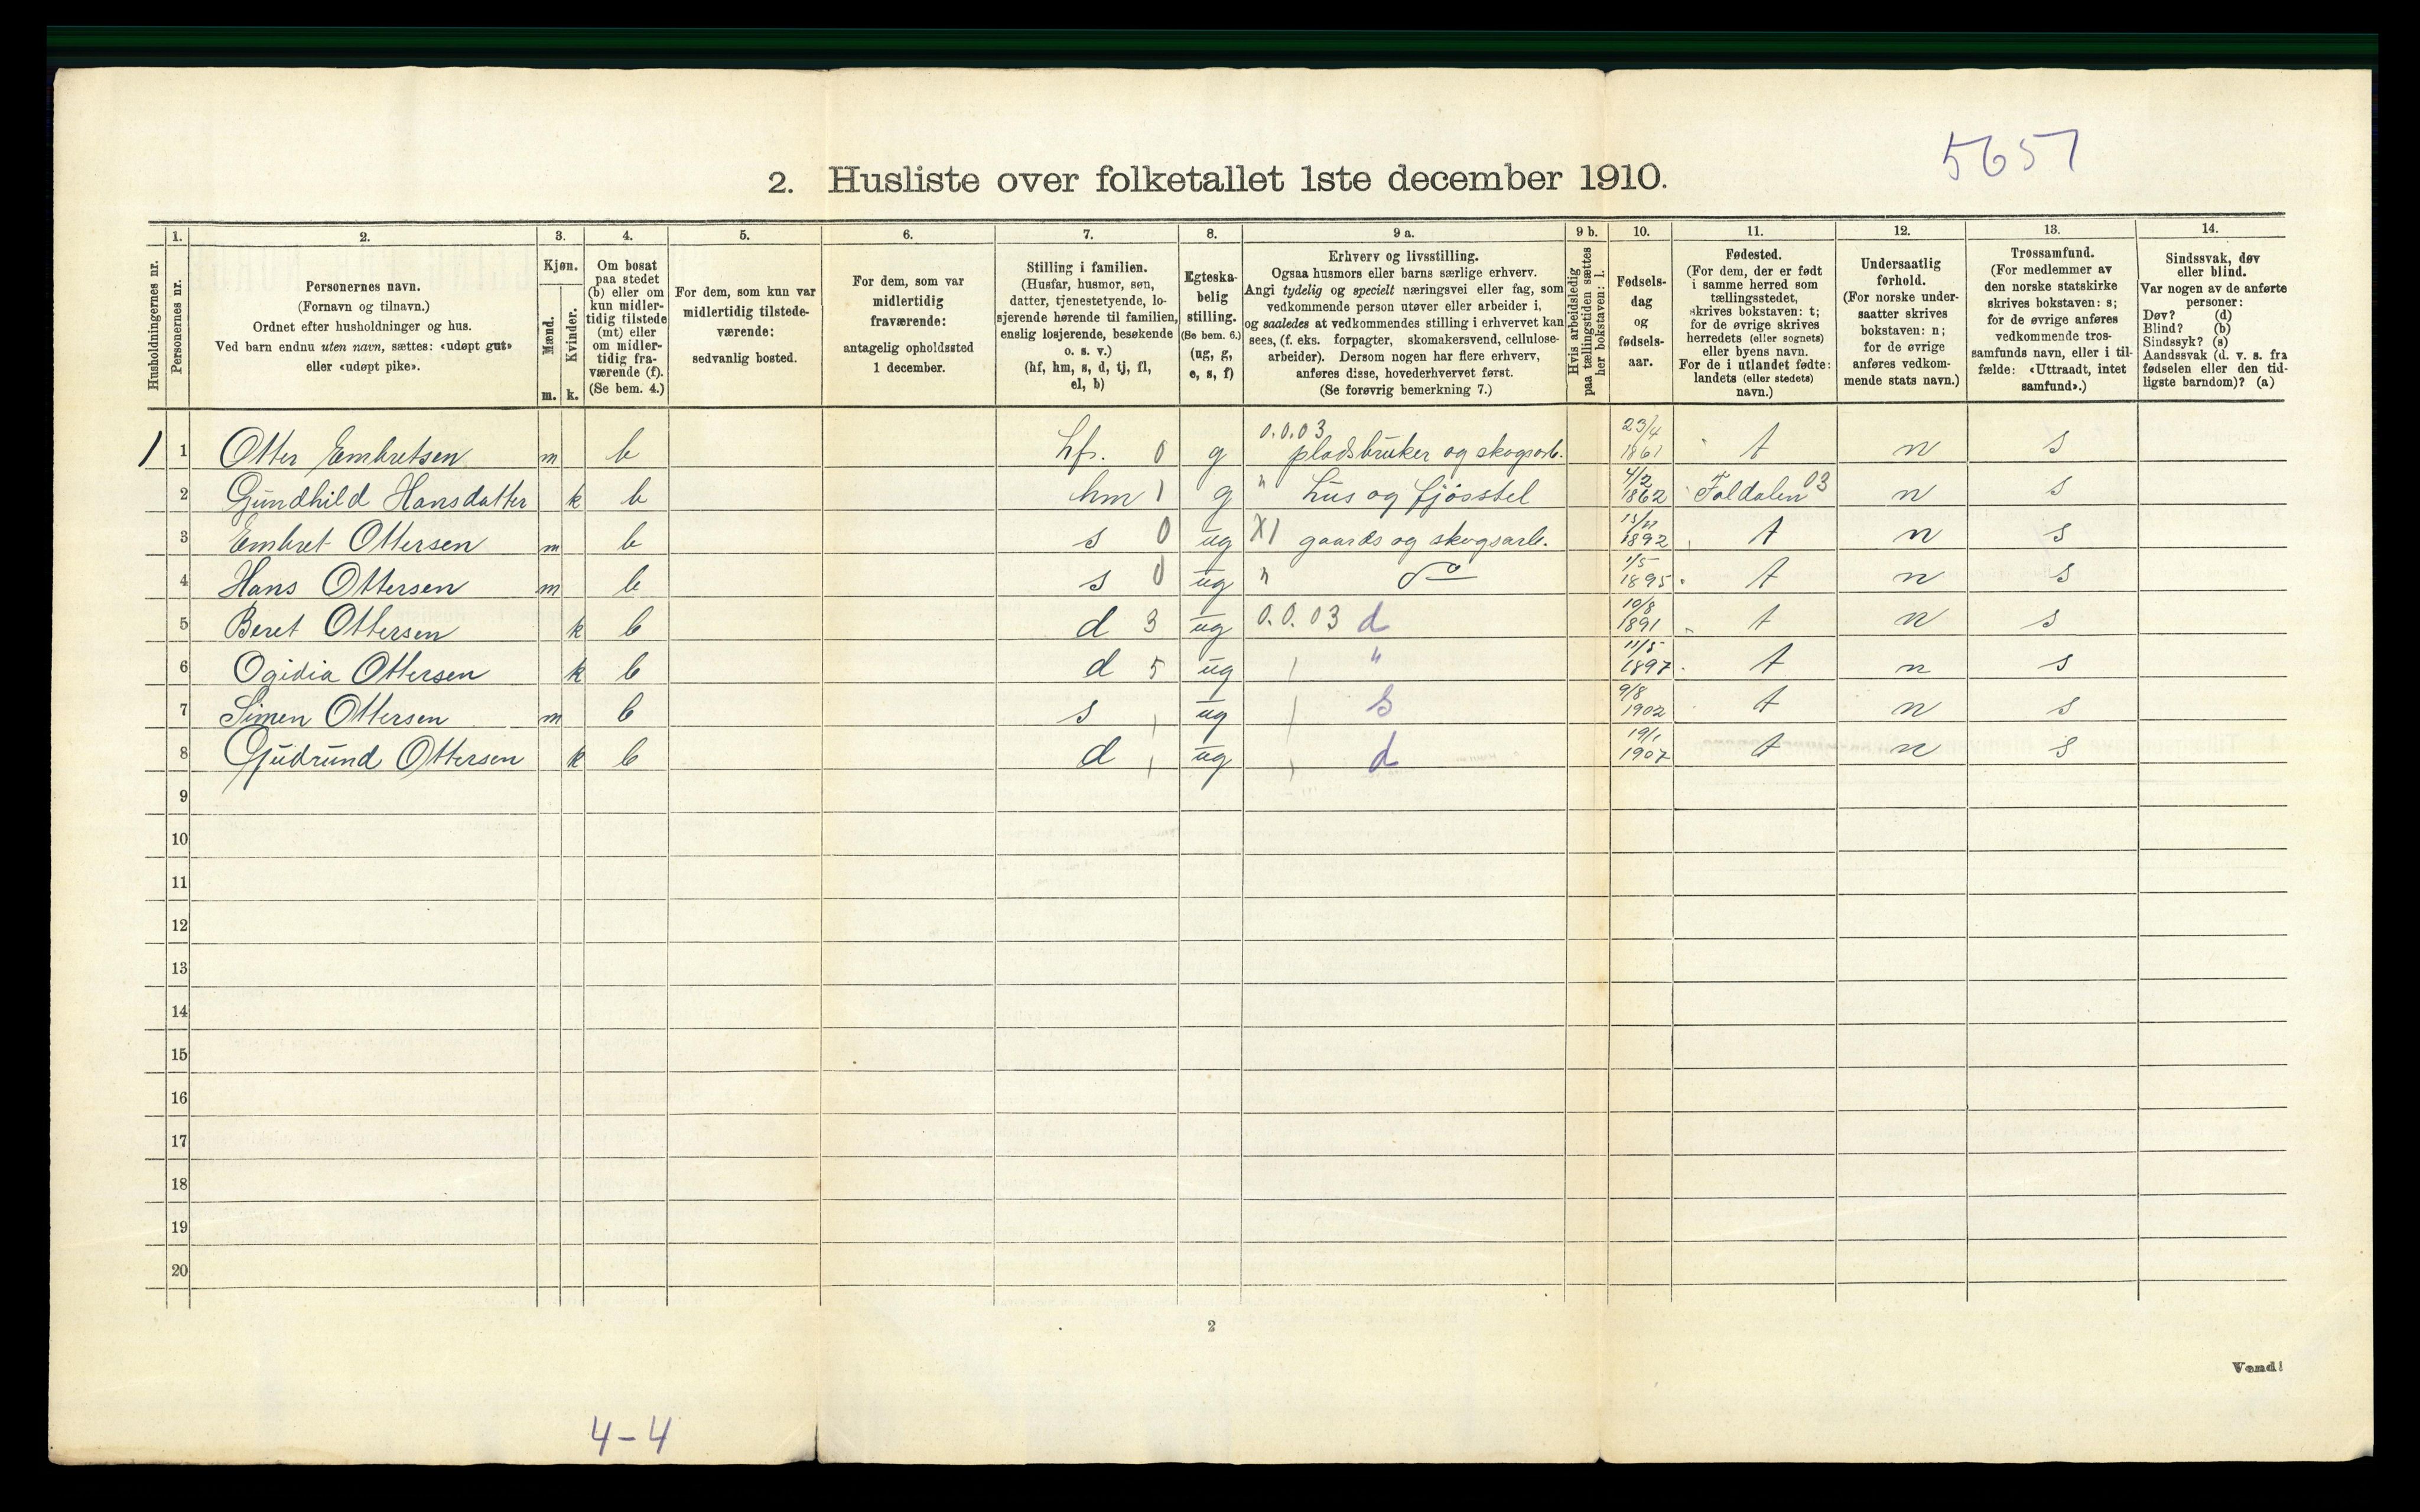 5657
2. Husliste over folketallet 1ste december 1910.
Husholdningernes nr.
1. Personernes nr.
2. Personernes navn. (Fornavn og tilnavn.) Ordnet efter husholdninger og hus. Ved barn endnu uten navn, sættes: «udøpt gut» eller «udøpt pike».
3. Kjøn. Mænd. m. Kvinder. k.
4. Om bosat paa stedet (b) eller om kun midlertidig tilstede (mt) eller om midlertidig fraværende (f). (Se bem. 4.)
5. For dem, som kun var midlertidig tilstedeværende: sedvanlig bosted.
6. For dem, som var midlertidig fraværende: antagelig opholdssted 1 december.
7. Stilling i familien. (Husfar, husmor, søn, datter, tjenestetyende, losjerende hørende til familien, enslig losjerende, besøkende o. s. v.) (hf, hm, s, d, tj, fl, el, b)
8. Egteskabelig stilling. (Se bem. 6.) (ug, g, e, s, f)
9 a. Erhverv og livsstilling. Ogsaa husmors eller barns særlige erhverv. Angi tydelig og specielt næringsvei eller fag, som vedkommende person utøver eller arbeider i, og saaledes at vedkommendes stilling i erhvervet kan sees, (f. eks. forpagter, skomakersvend, cellulosearbeider). Dersom nogen har flere erhverv, anføres disse, hovederhvervet først. (Se forøvrig bemerkning 7.)
9 b. Hvis arbeidsledig paa tællingstiden sættes her bokstaven: l.
10. Fødselsdag og fødselsaar.
11. Fødested. (For dem, der er født i samme herred som tællingsstedet, skrives bokstaven: t; for de øvrige skrives herredets (eller sognets) eller byens navn. For de i utlandet fødte: landets (eller stedets) navn.)
12. Undersaatlig forhold. (For norske undersaatter skrives bokstaven: n; for de øvrige anføres vedkommende stats navn.)
13. Trossamfund. (For medlemmer av den norske statskirke skrives bokstaven: s; for de øvrige anføres vedkommende trossamfunds navn, eller i tilfælde: «Uttraadt, intet samfund».)
14. Sindssvak, døv eller blind. Var nogen av de anførte personer: Døv? (d) Blind? (b) Sindssyk? (s) Aandssvak (d. v. s. fra fødselen eller den tidligste barndom)? (a)
1 1 Otter Embretsen m b hf. 0 g 0.0.03 pladsbruker og skogsarb. 23/4 1861 t n s
2 Gundhild Hansdatter k b hm 1 g " hus og fjøsstel 4/2 1862 Foldalen 03 n s
3 Embret Ottersen m b s 0 ug X1 gaards og skogsarb. 1892 t n s
4 Hans Ottersen m b s 0 ug " do 1/5 1895 t n s
5 Beret Ottersen k b d 3 ug 0.0.03 d 10/8 1891 t n s
6 Ogidia Ottersen k b d 5 ug " 11/5 1897 t n s
7 Simen Ottersen m b s ug s 9/8 1902 t n s
8 Gudrund Ottersen k b d ug d 19/1 1907 t n s
9
10
11
12
13
14
15
16
17
18
19
20
2
Vend!
4-4